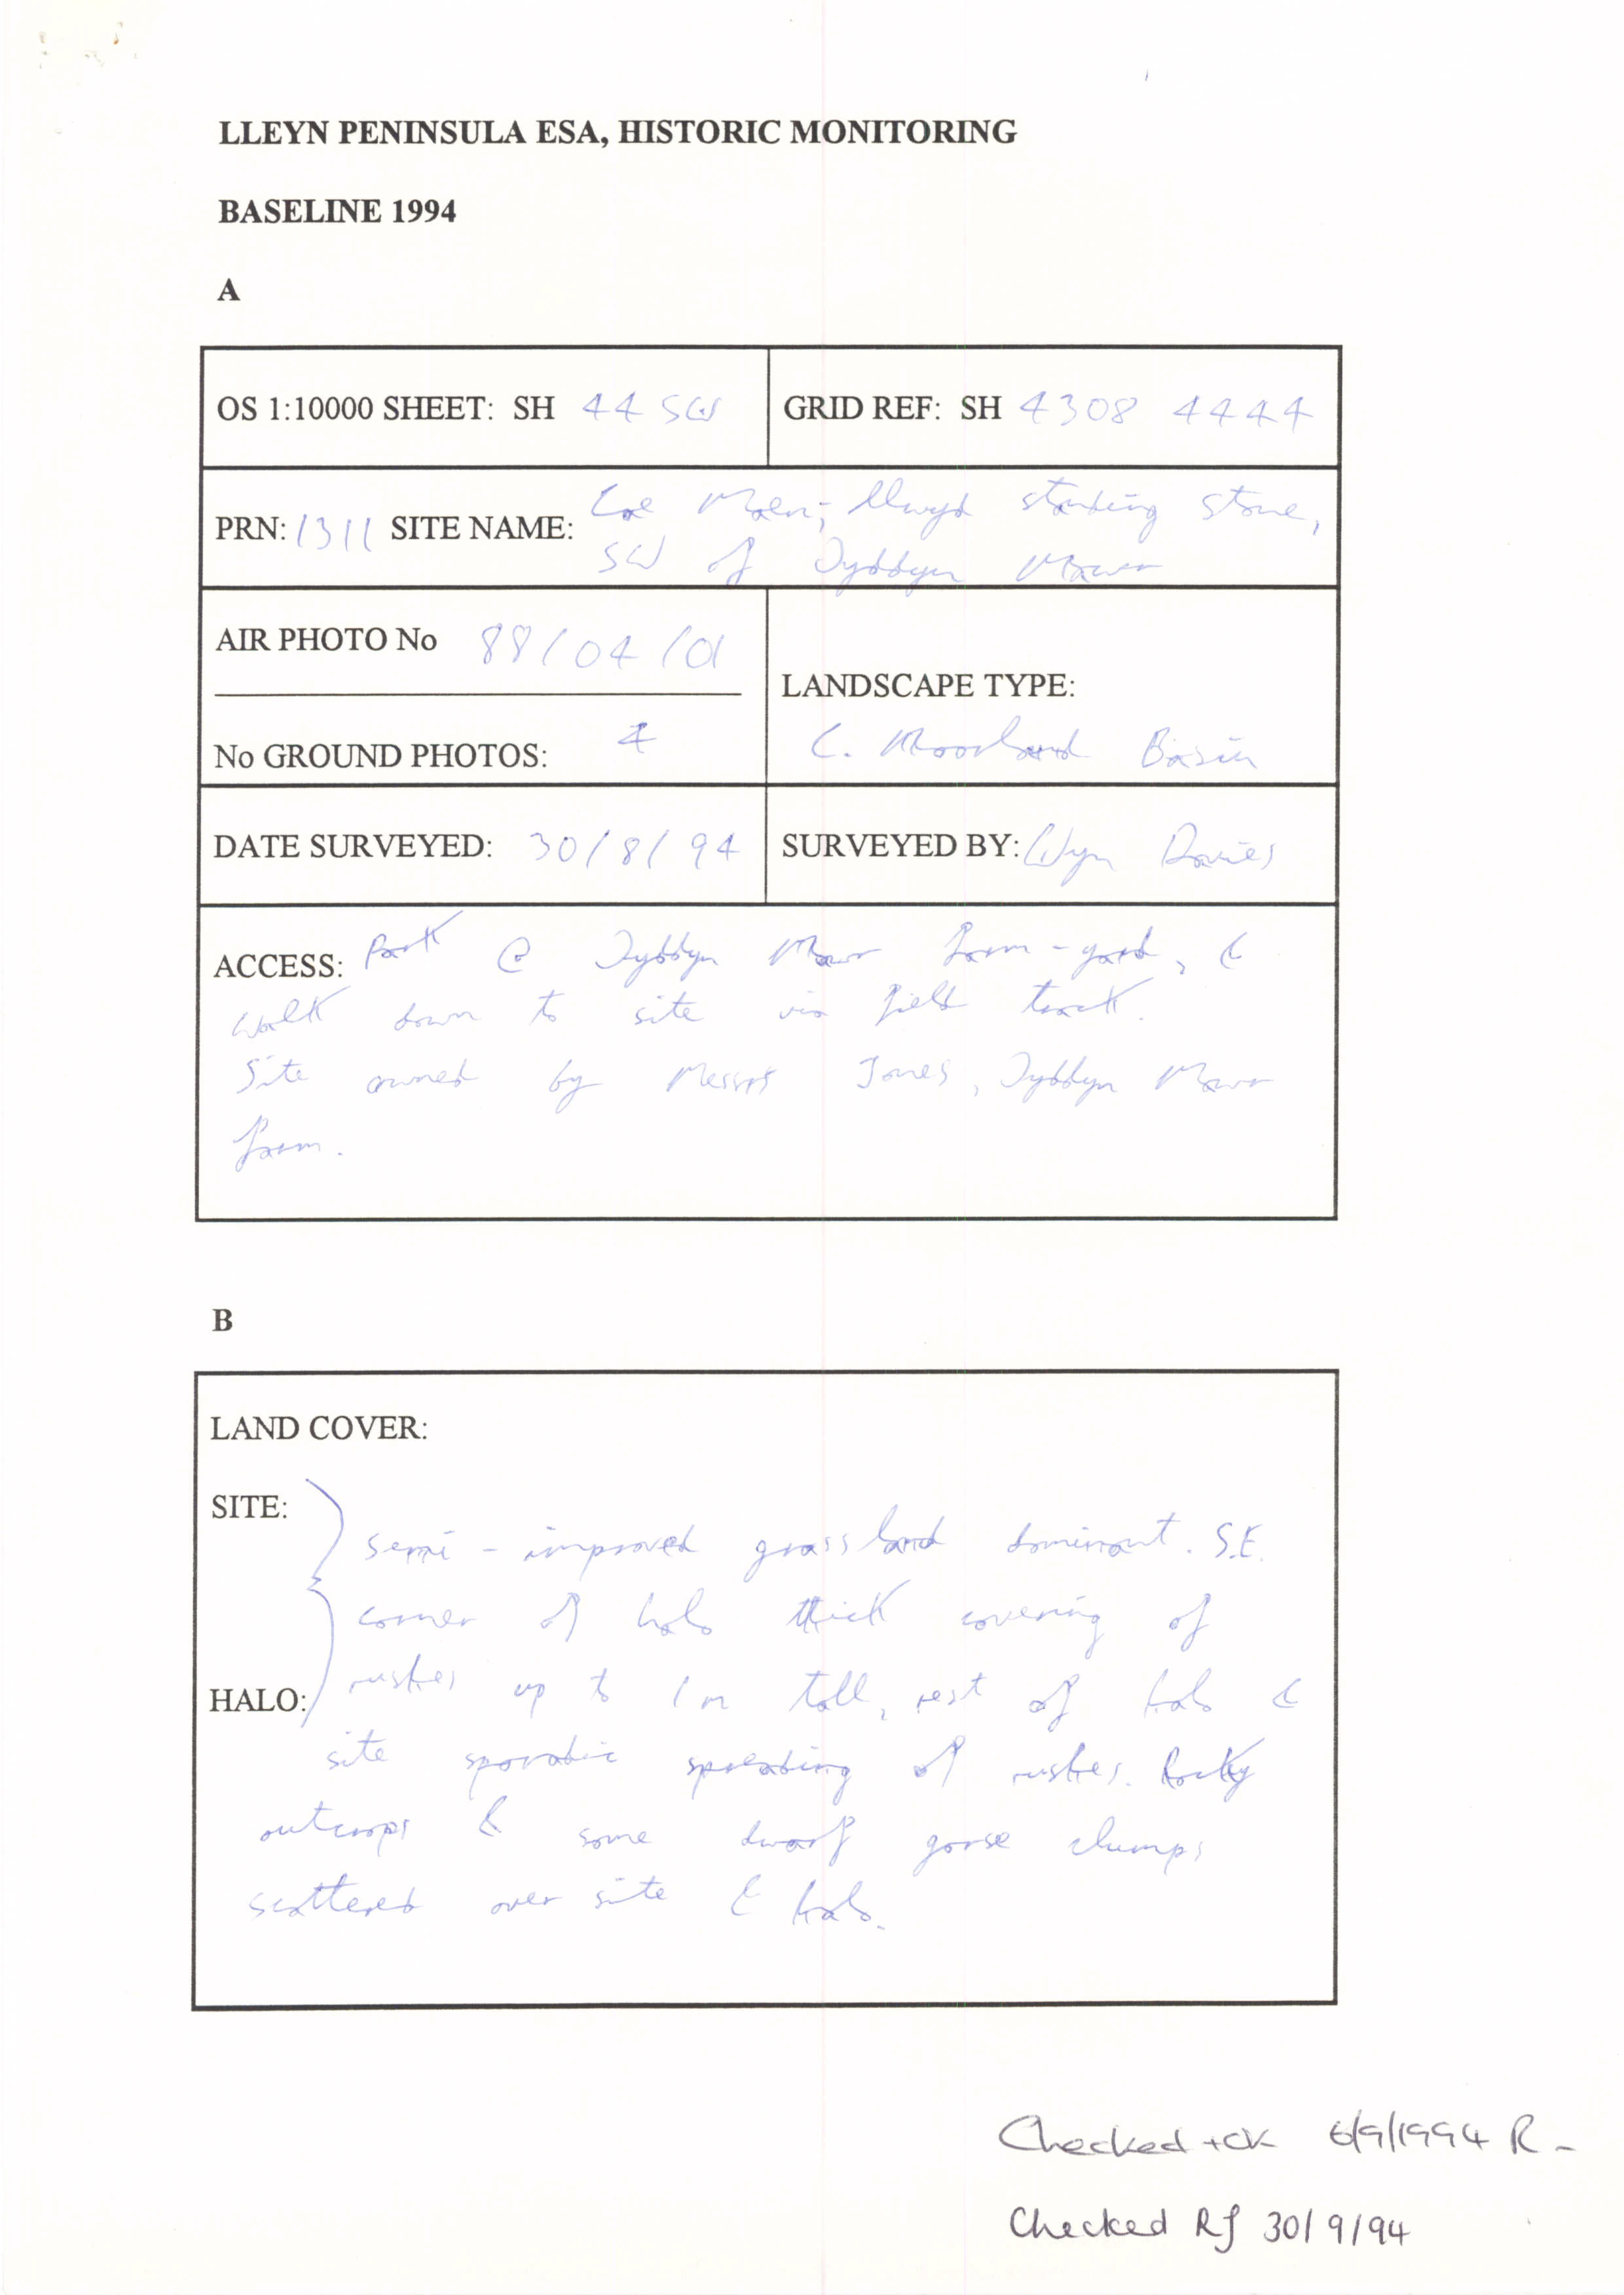 LLEYN PENINSULA ESA, HISTORIC MONITORING
BASELINE 1994
A
OS 1:10000 SHEET: SH 44 SW
GRID REF: SH 4308 4444
PRN: 1311 SITE NAME: Cae Maen; llwyd standing stone,
SW of Tyddyn Mawr
AIR PHOTO No 88/04/01
No GROUND PHOTOS: 4
LANDSCAPE TYPE:
C. Moorland Basin
DATE SURVEYED: 30/8/94
SURVEYED BY: Wyn Davies
ACCESS: Park @ Tyddyn Mawr farm-yard, &
walk down to site via field track.
Site owned by Messrs Jones, Tyddyn Mawr
farm.
B
LAND COVER:
SITE:
semi-improved grassland dominant. S.E.
corner of halo thick covering of
HALO: rushes up to 1m tall, rest of halo &
site sporadic spreading of rushes. Rocky
outcrops & some dwarf gorse clumps
scattered over site & halo.
Checked + OK 6/9/1994 R
Checked RJ 30/9/94